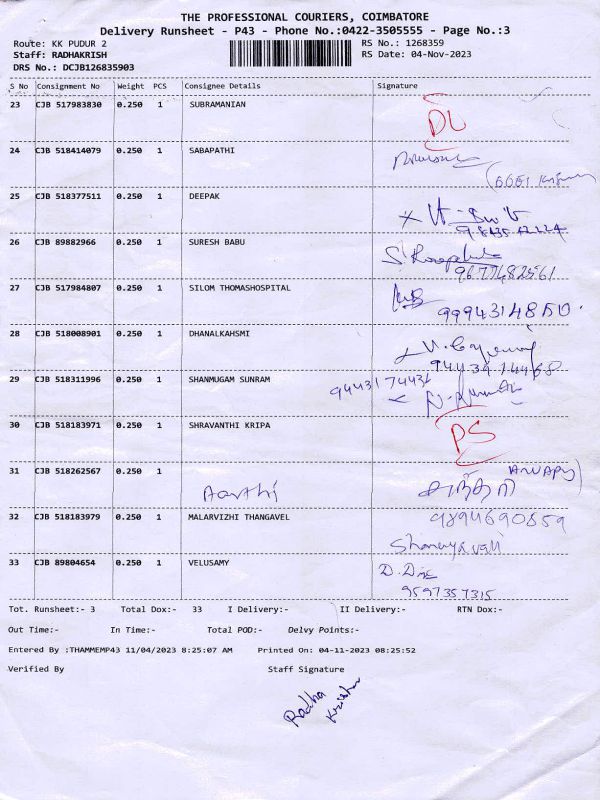 THE PROFESSIONAL COURIERS, COIMBATORE
Delivery Runsheet - P43 - Phone No.:0422-3505555 - Page No.:3
Route: KK PUDUR 2 RS No.: 1268359
Staff: RADHAKRISH RS Date: 04-Nov-2023
DRS No.: DCJB126835903
S No Consignment No Weight PCS Consignee Details Signature
23 CJB 517983830 0.250 1 SUBRAMANIAN DL
24 CJB 518414079 0.250 1 SABAPATHI
25 CJB 518377511 0.250 1 DEEPAK
26 CJB 89882966 0.250 1 SURESH BABU
9677482561
27 CJB 517984807 0.250 1 SILOM THOMASHOSPITAL
9994314850
28 CJB 518008901 0.250 1 DHANALKAHSMI
29 CJB 518311996 0.250 1 SHANMUGAM SUNRAM
30 CJB 518183971 0.250 1 SHRAVANTHI KRIPA PS
31 CJB 518262567 0.250 1
Aarthi
32 CJB 518183979 0.250 1 MALARVIZHI THANGAVEL 9894690859
33 CJB 89804654 0.250 1 VELUSAMY
9597357315
Tot. Runsheet:- 3 Total Dox:- 33 I Delivery:- II Delivery:- RTN Dox:-
Out Time:- In Time:- Total POD:- Delvy Points:-
Entered By :THAMMEMP43 11/04/2023 8:25:07 AM Printed On: 04-11-2023 08:25:52
Verified By Staff Signature
Radha
Krishna